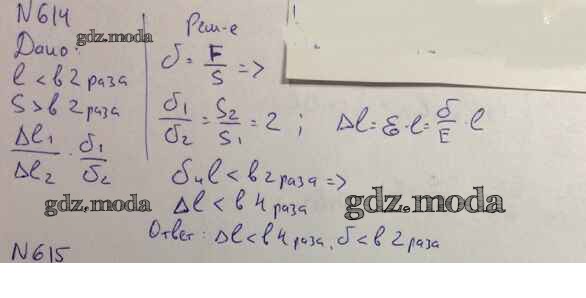 N614
Дано:
l < в 2 раза
S > в 2 раза
Δl₁/Δl₂ · σ₁/σ₂
Реш-е
σ = F/S =>
σ₁/σ₂ = S₂/S₁ = 2 ; Δl = ε·l = σ/E · l
σ и l < в 2 раза =>
Δl < в 4 раза
Ответ: Δl < в 4 раза, σ < в 2 раза
N615
gdz.moda
gdz.moda
gdz.moda
gdz.moda